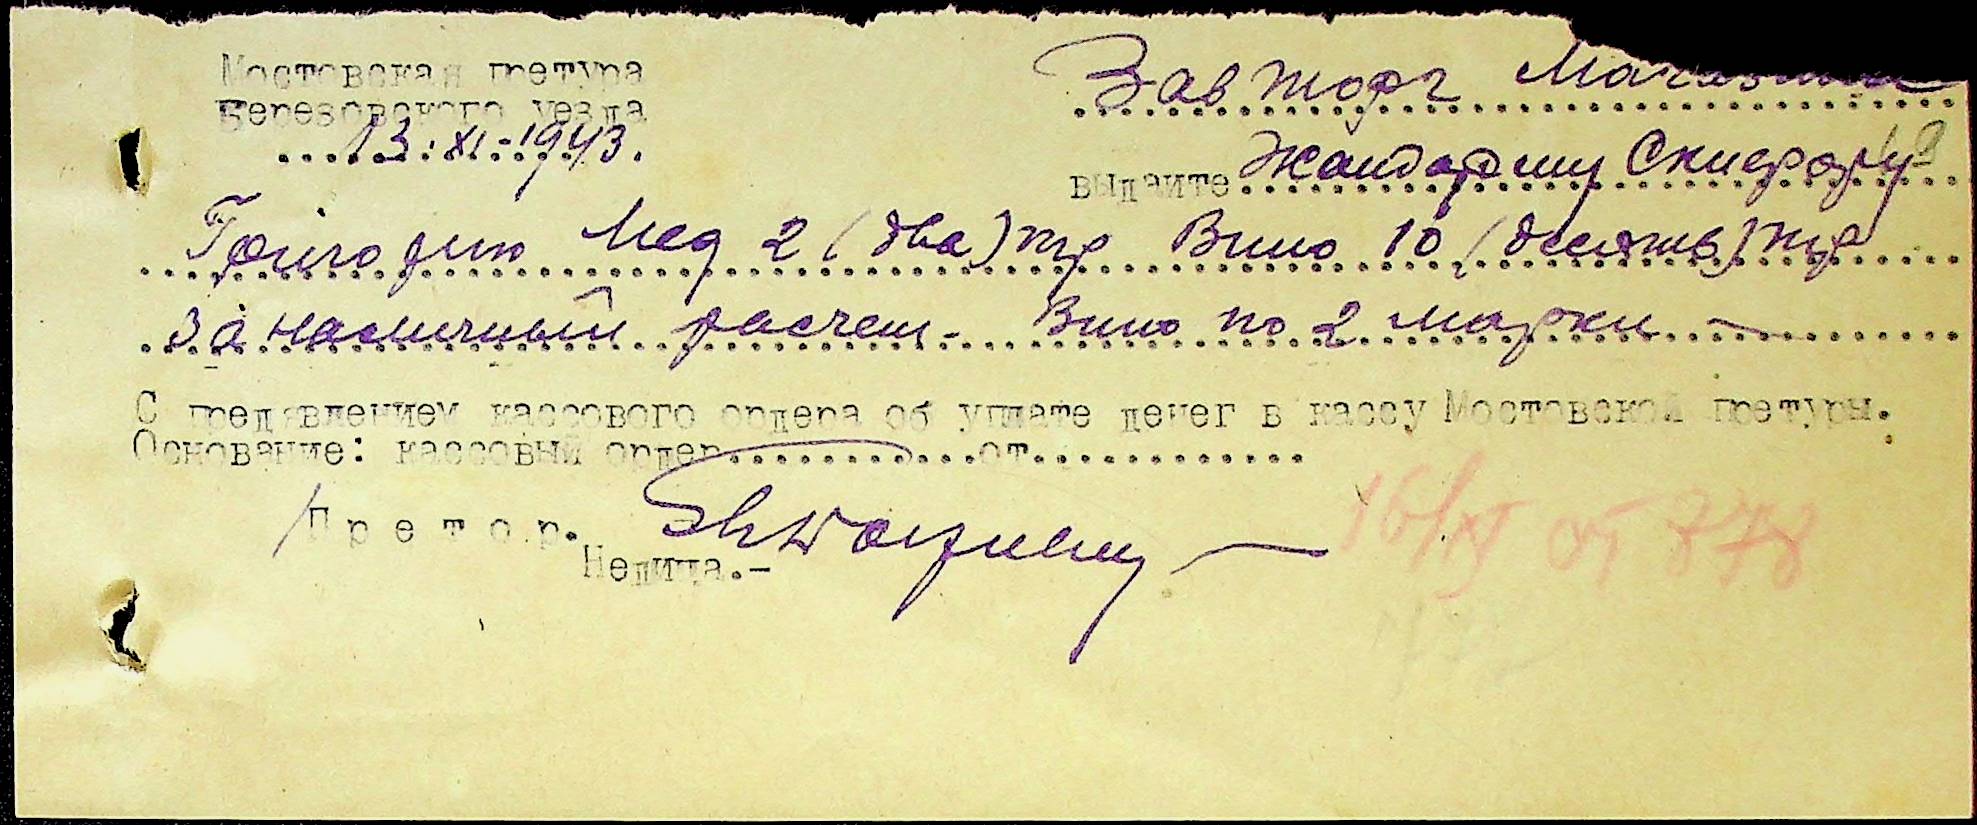 Мостовская претура
Березовского уезда
13.XI-1943.
Завторг
выдайте Жандарму Скифору
Григорию Мед 2 (два) кгр Вино 10 (десять) кгр
За наличный расчет - Вино по 2 марки
С предявлением кассового ордера об уплате денег в кассу Мостовской претуры.
Основание: кассовый ордер............от.............
Претор.
Нелица.-
16/XI от 878